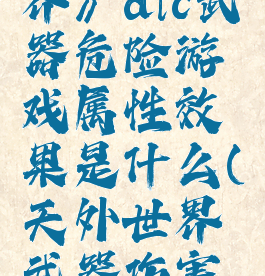 界》dlc武
器危险游
戏属性效
果是什么(
天外世界
武器伤害